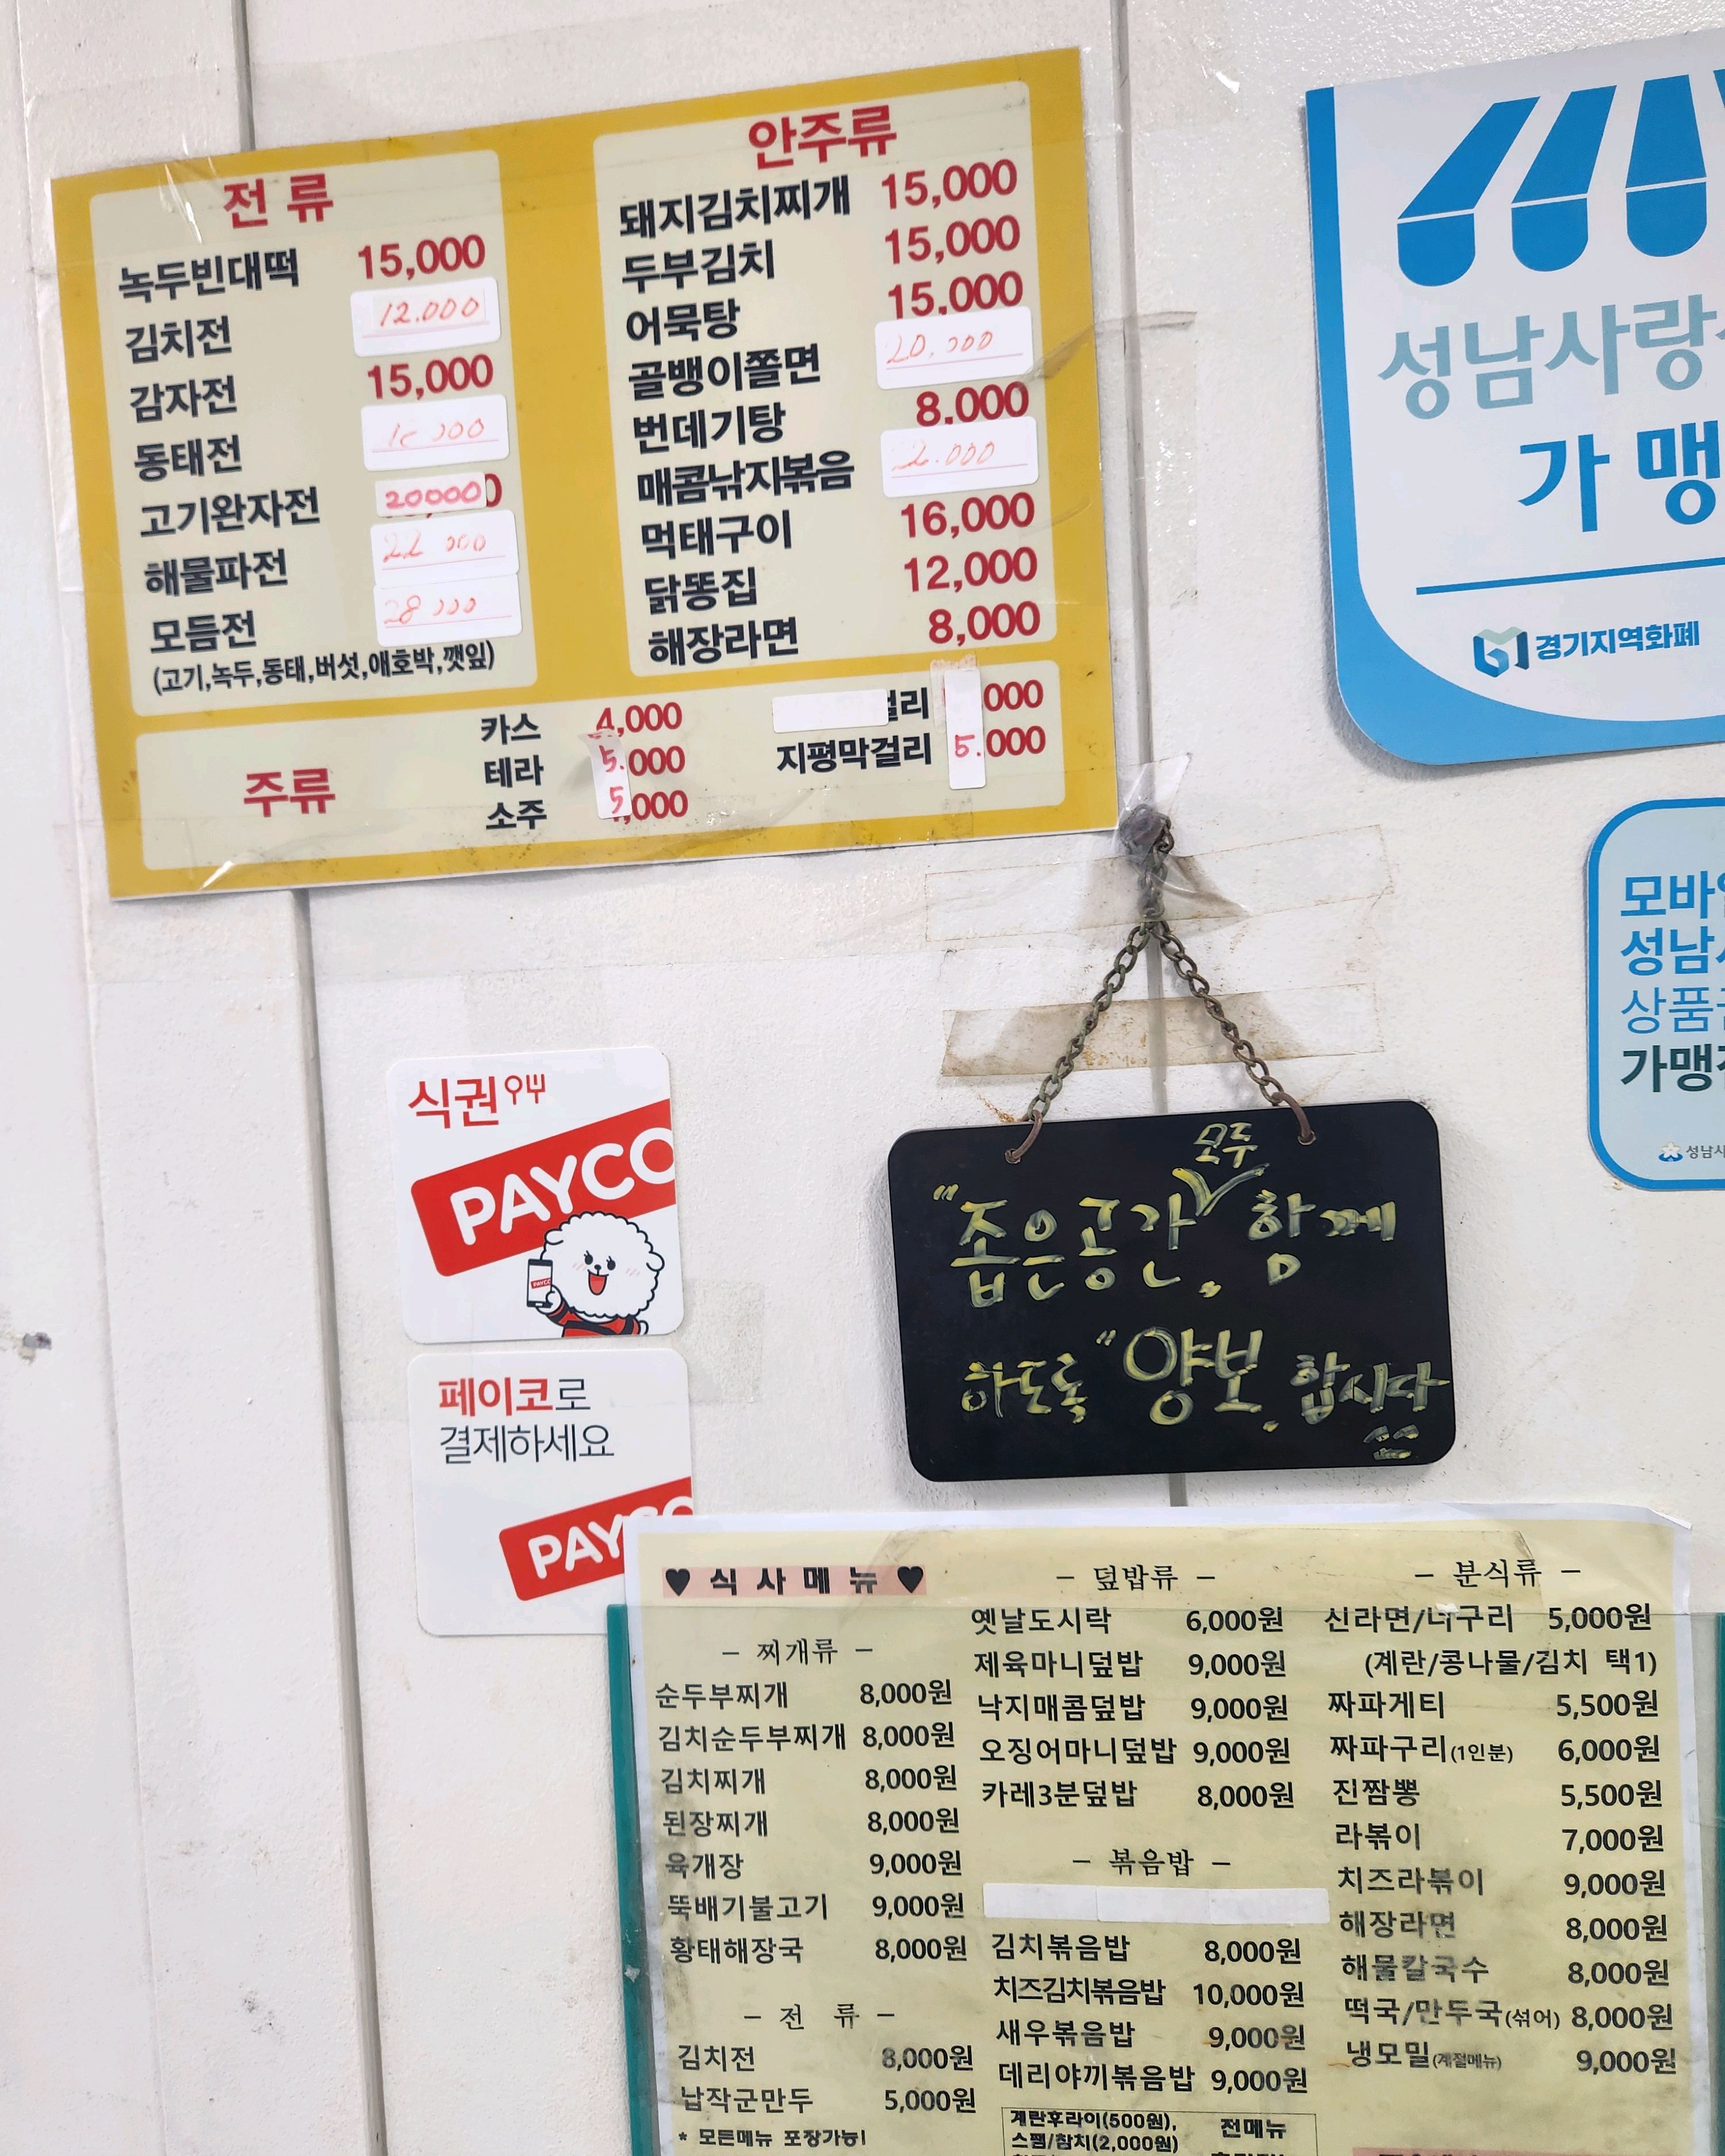 전 류
녹두빈대떡 15,000
김치전 12.000
감자전 15,000
동태전
고기완자전 20000
해물파전 22 000
모듬전 28 000
(고기,녹두,동태,버섯,애호박,깻잎)
안주류
돼지김치찌개 15,000
두부김치 15,000
어묵탕 15,000
골뱅이쫄면 20.000
번데기탕 8,000
매콤낚지볶음 2.000
먹태구이 16,000
닭똥집 12,000
해장라면 8,000
주류
카스 4,000
테라 5.000
소주 5,000
걸리 ,000
지평막걸리 5.000
성남사랑
가 맹
경기지역화폐
모바일
성남사
상품권
가맹점
성남시
식권
PAYCO
PAYCO
페이코로
결제하세요
PAYCO
모두
"좁은공간, 함께
하도록 "양보, 합시다
♥ 식 사 메 뉴 ♥
- 찌개류 -
순두부찌개 8,000원
김치순두부찌개 8,000원
김치찌개 8,000원
된장찌개 8,000원
육개장 9,000원
뚝배기불고기 9,000원
황태해장국 8,000원
- 전 류 -
김치전 8,000원
납작군만두 5,000원
* 모든메뉴 포장가능!
- 덮밥류 -
옛날도시락 6,000원
제육마니덮밥 9,000원
낙지매콤덮밥 9,000원
오징어마니덮밥 9,000원
카레3분덮밥 8,000원
- 볶음밥 -
김치볶음밥 8,000원
치즈김치볶음밥 10,000원
새우볶음밥 9,000원
데리야끼볶음밥 9,000원
계란후라이(500원), 전메뉴
스팸/참치(2,000원)
- 분식류 -
신라면/너구리 5,000원
(계란/콩나물/김치 택1)
짜파게티 5,500원
짜파구리(1인분) 6,000원
진짬뽕 5,500원
라볶이 7,000원
치즈라볶이 9,000원
해장라면 8,000원
해물칼국수 8,000원
떡국/만두국(섞어) 8,000원
냉모밀(계절메뉴) 9,000원